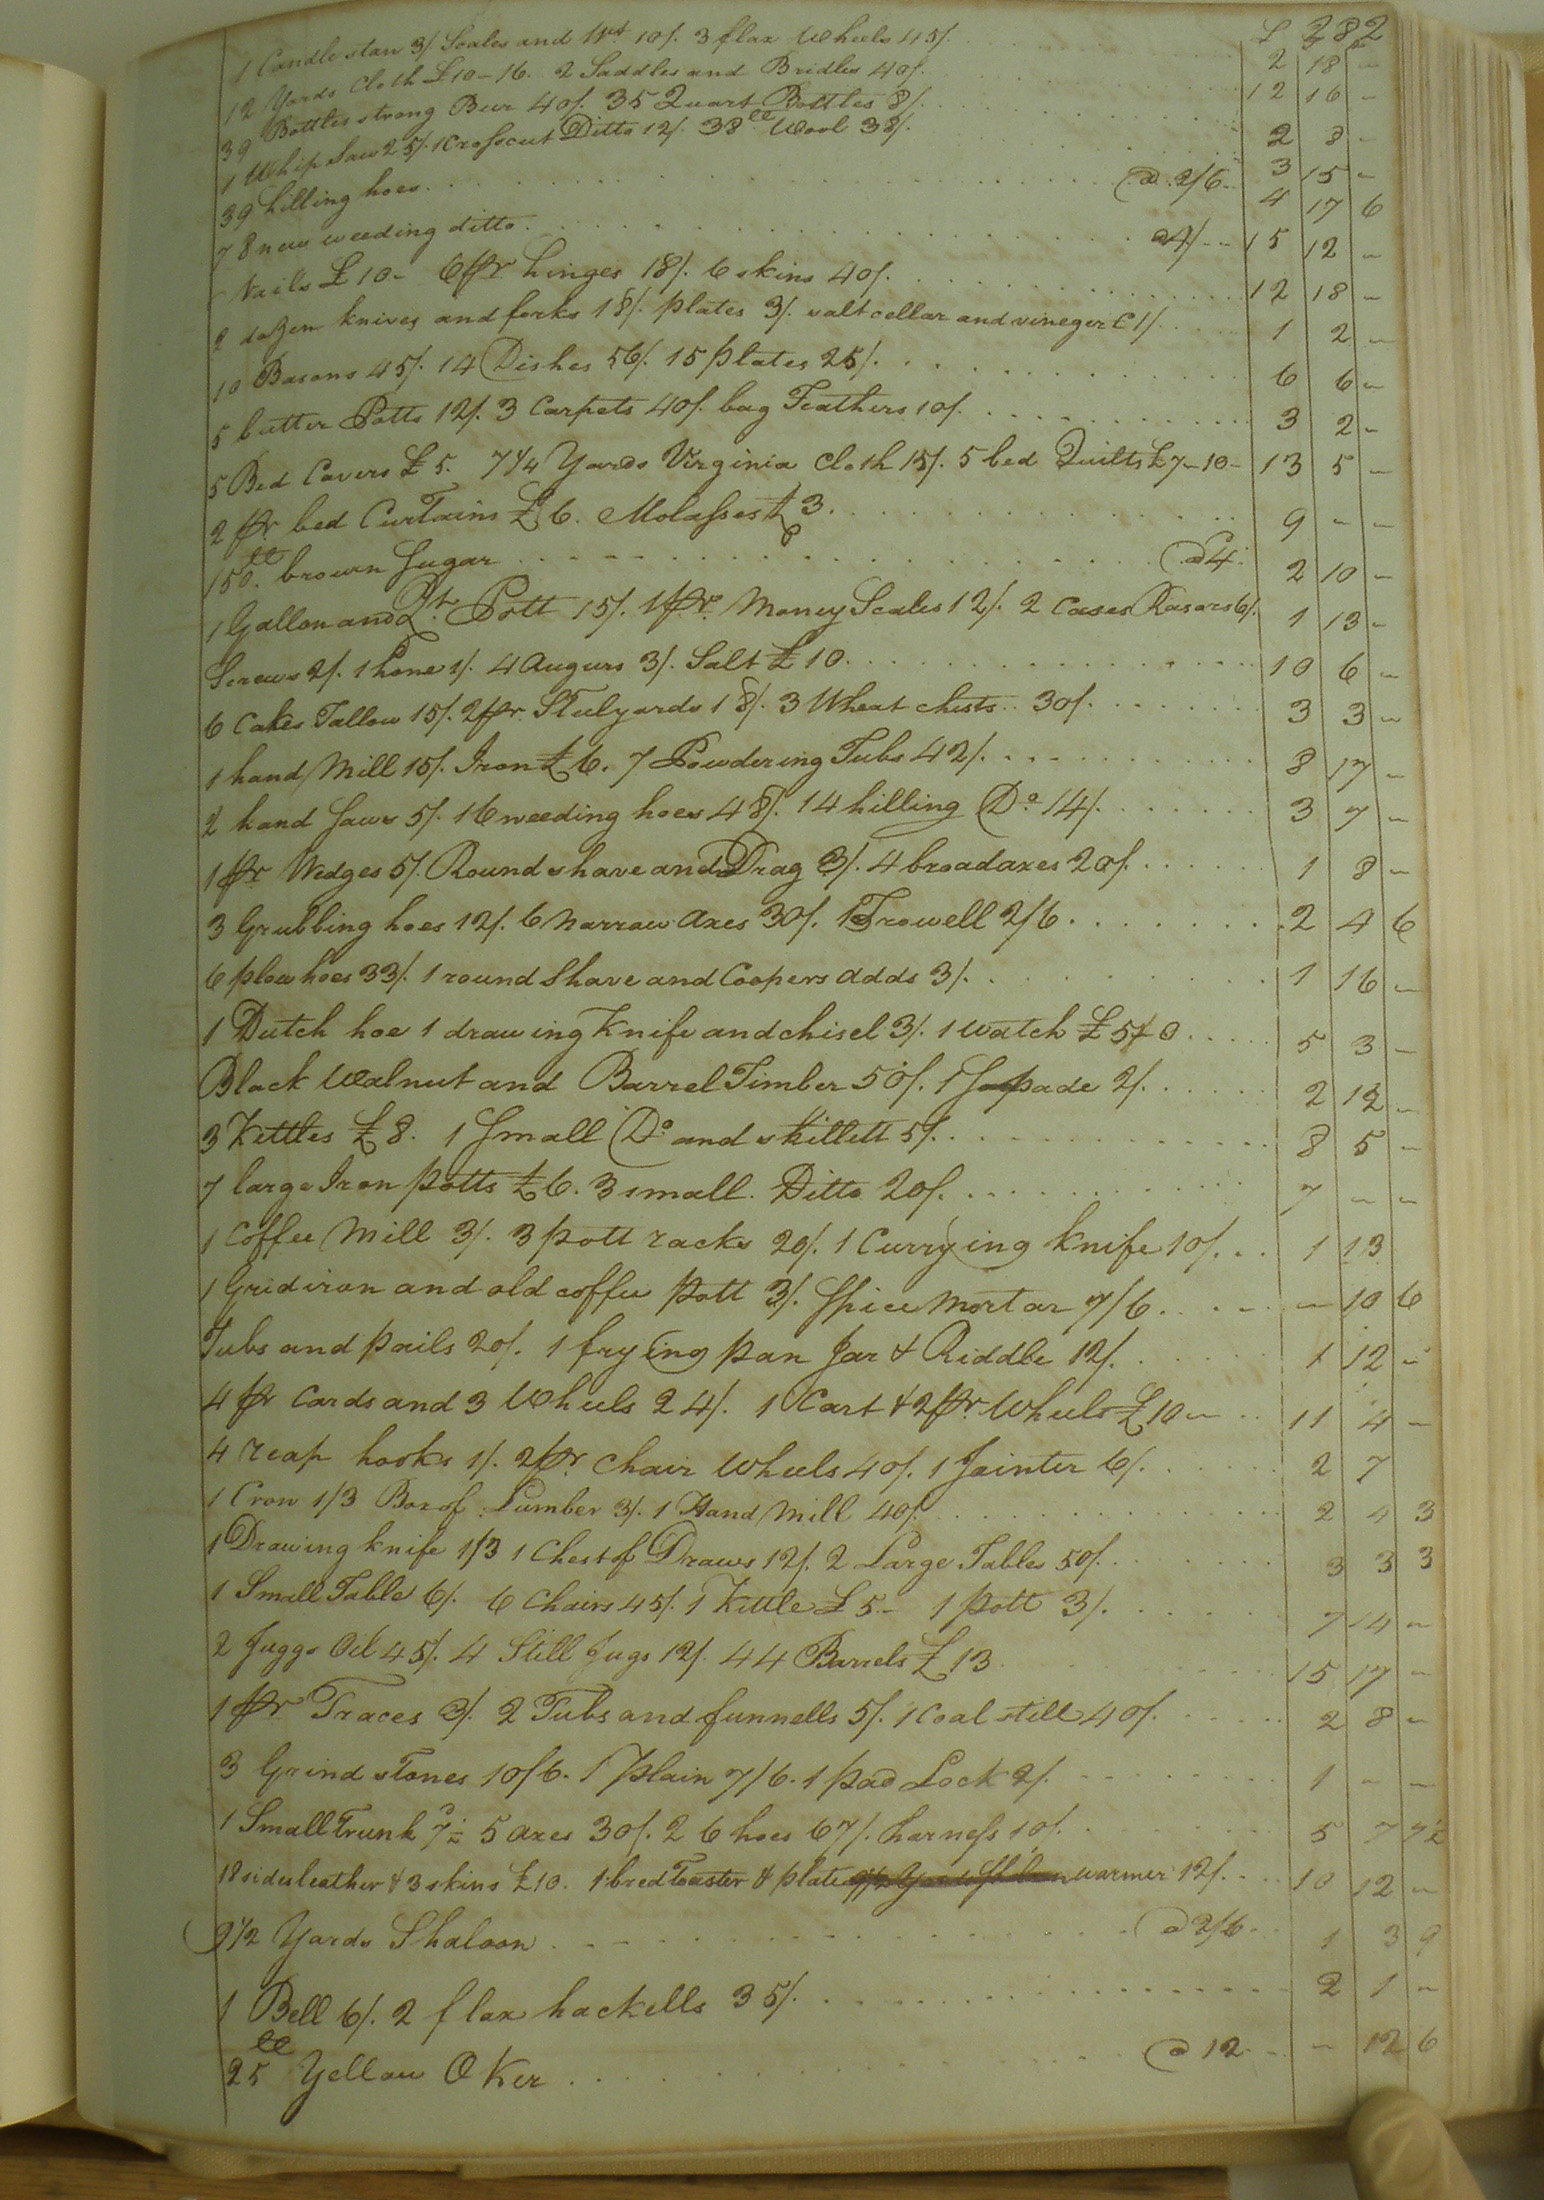 £ 282
1 Candle stan 3/. Scales and Wt 10/. 3 flax Wheels 45/. 2 18 -
12 Yards Cloth £10-16. 2 Saddles and Bridles 40/. 12 16 -
39 Bottles strong Beer 40/. 35 Quart Bottles 8/. 2 8 -
1 Whip Saw 25/. 1 Crosscut Ditto 12/. 38 ll Wool 38/. 3 15 -
39 hilling hoes @ 2/6 4 17 6
78 new weeding ditto @ 4/ 15 12 -
Nails £10- 6 pr hinges 18/. 6 skins 40/. 12 18 -
2 dozen knives and forks 18/. plates 3/. salt cellar and vineger C 1/. 1 2 -
10 Basons 45/. 14 Dishes 56/. 15 plates 25/. 6 6 -
5 butter Potts 12/. 3 Carpets 40/. bag Feathers 10/. 3 2 -
5 Bed Covers £5. 7 1/4 Yards Virginia Cloth 15/. 5 bed Quilts £7-10- 13 5 -
2 pr bed Curtains £6. Molasses £3. 9 - -
150 ll. brown Sugar @ 4 2 10 -
1 Gallon and Qt. Pott 15/. 1 pr. Money Scales 12/. 2 Cases Rasors 6/. 1 13 -
Screws 2/. 1 hone 1/. 4 Augurs 3/. Salt £10. 10 6 -
6 Cakes Tallow 15/. 2 pr. Stulyards 18/. 3 Wheat chests 30/. 3 3 -
1 hand Mill 15/. Iron £6. 7 Powdering Tubs 42/. 8 17 -
2 hand Saws 5/. 16 weeding hoes 48/. 14 hilling Do 14/. 3 7 -
1 pr Wedges 5/. Round shave and Drag 3/. 4 broad axes 20/. 1 8 -
3 Grubbing hoes 12/. 6 Narrow Axes 30/. 1 Trowell 2/6. 2 4 6
6 plow hoes 33/. 1 round Shave and Coopers adds 3/. 1 16 -
1 Dutch hoe 1 drawing Knife and chisel 3/. 1 Watch £5 0 5 3 -
Black Walnut and Barrel Timber 50/. 1 Spade 2/. 2 12 -
3 Kettles £8. 1 Small Do and skillett 5/. 8 5 -
7 large Iron potts £6. 3 small Ditto 20/. 7 - -
1 Coffee Mill 3/. 3 pott racks 20/. 1 Currying Knife 10/. 1 13
1 Gridiron and old coffee pott 3/. Spice Mortar 7/6. - 10 6
Tubs and pails 20/. 1 frying pan Jar & Riddle 12/. 1 12 -
4 pr Cards and 3 Wheels 24/. 1 Cart & 2 pr Wheels £10 - 11 4 -
4 reap hooks 1/. 2 pr. Chair Wheels 40/. 1 Jointer 6/. 2 7
1 Crow 1/3 Box of Lumber 3/. 1 Hand Mill 40/. 2 4 3
1 Drawing knife 1/3 1 Chest of Draws 12/. 2 Large Tables 50/. 3 3 3
1 Small Table 6/. 6 Chairs 45/. 1 Kettle £5- 1 pott 3/. 7 14 -
2 Juggs Oil 45/. 4 Still Jugs 12/. 44 Barrels £13 15 17 -
1 pr Traces 3/. 2 Tubs and funnells 5/. 1 Coal still 40/. 2 8 -
3 Grind stones 10/6. 1 plain 7/6. 1 pad Lock 2/. 1 - -
1 Small Trunk 7 1/2 5 axes 30/. 26 hoes 67/. harness 10/. 5 7 7 1/2
18 sides leather & 3 skins £10. 1 bred Toaster & plate warmer 12/. 10 12 -
9 1/2 Yards Shaloon @ 2/6 1 3 9
1 Bell 6/. 2 flax hackells 35/. 2 1 -
25 ll Yellow Oker @ 12 - 12 6